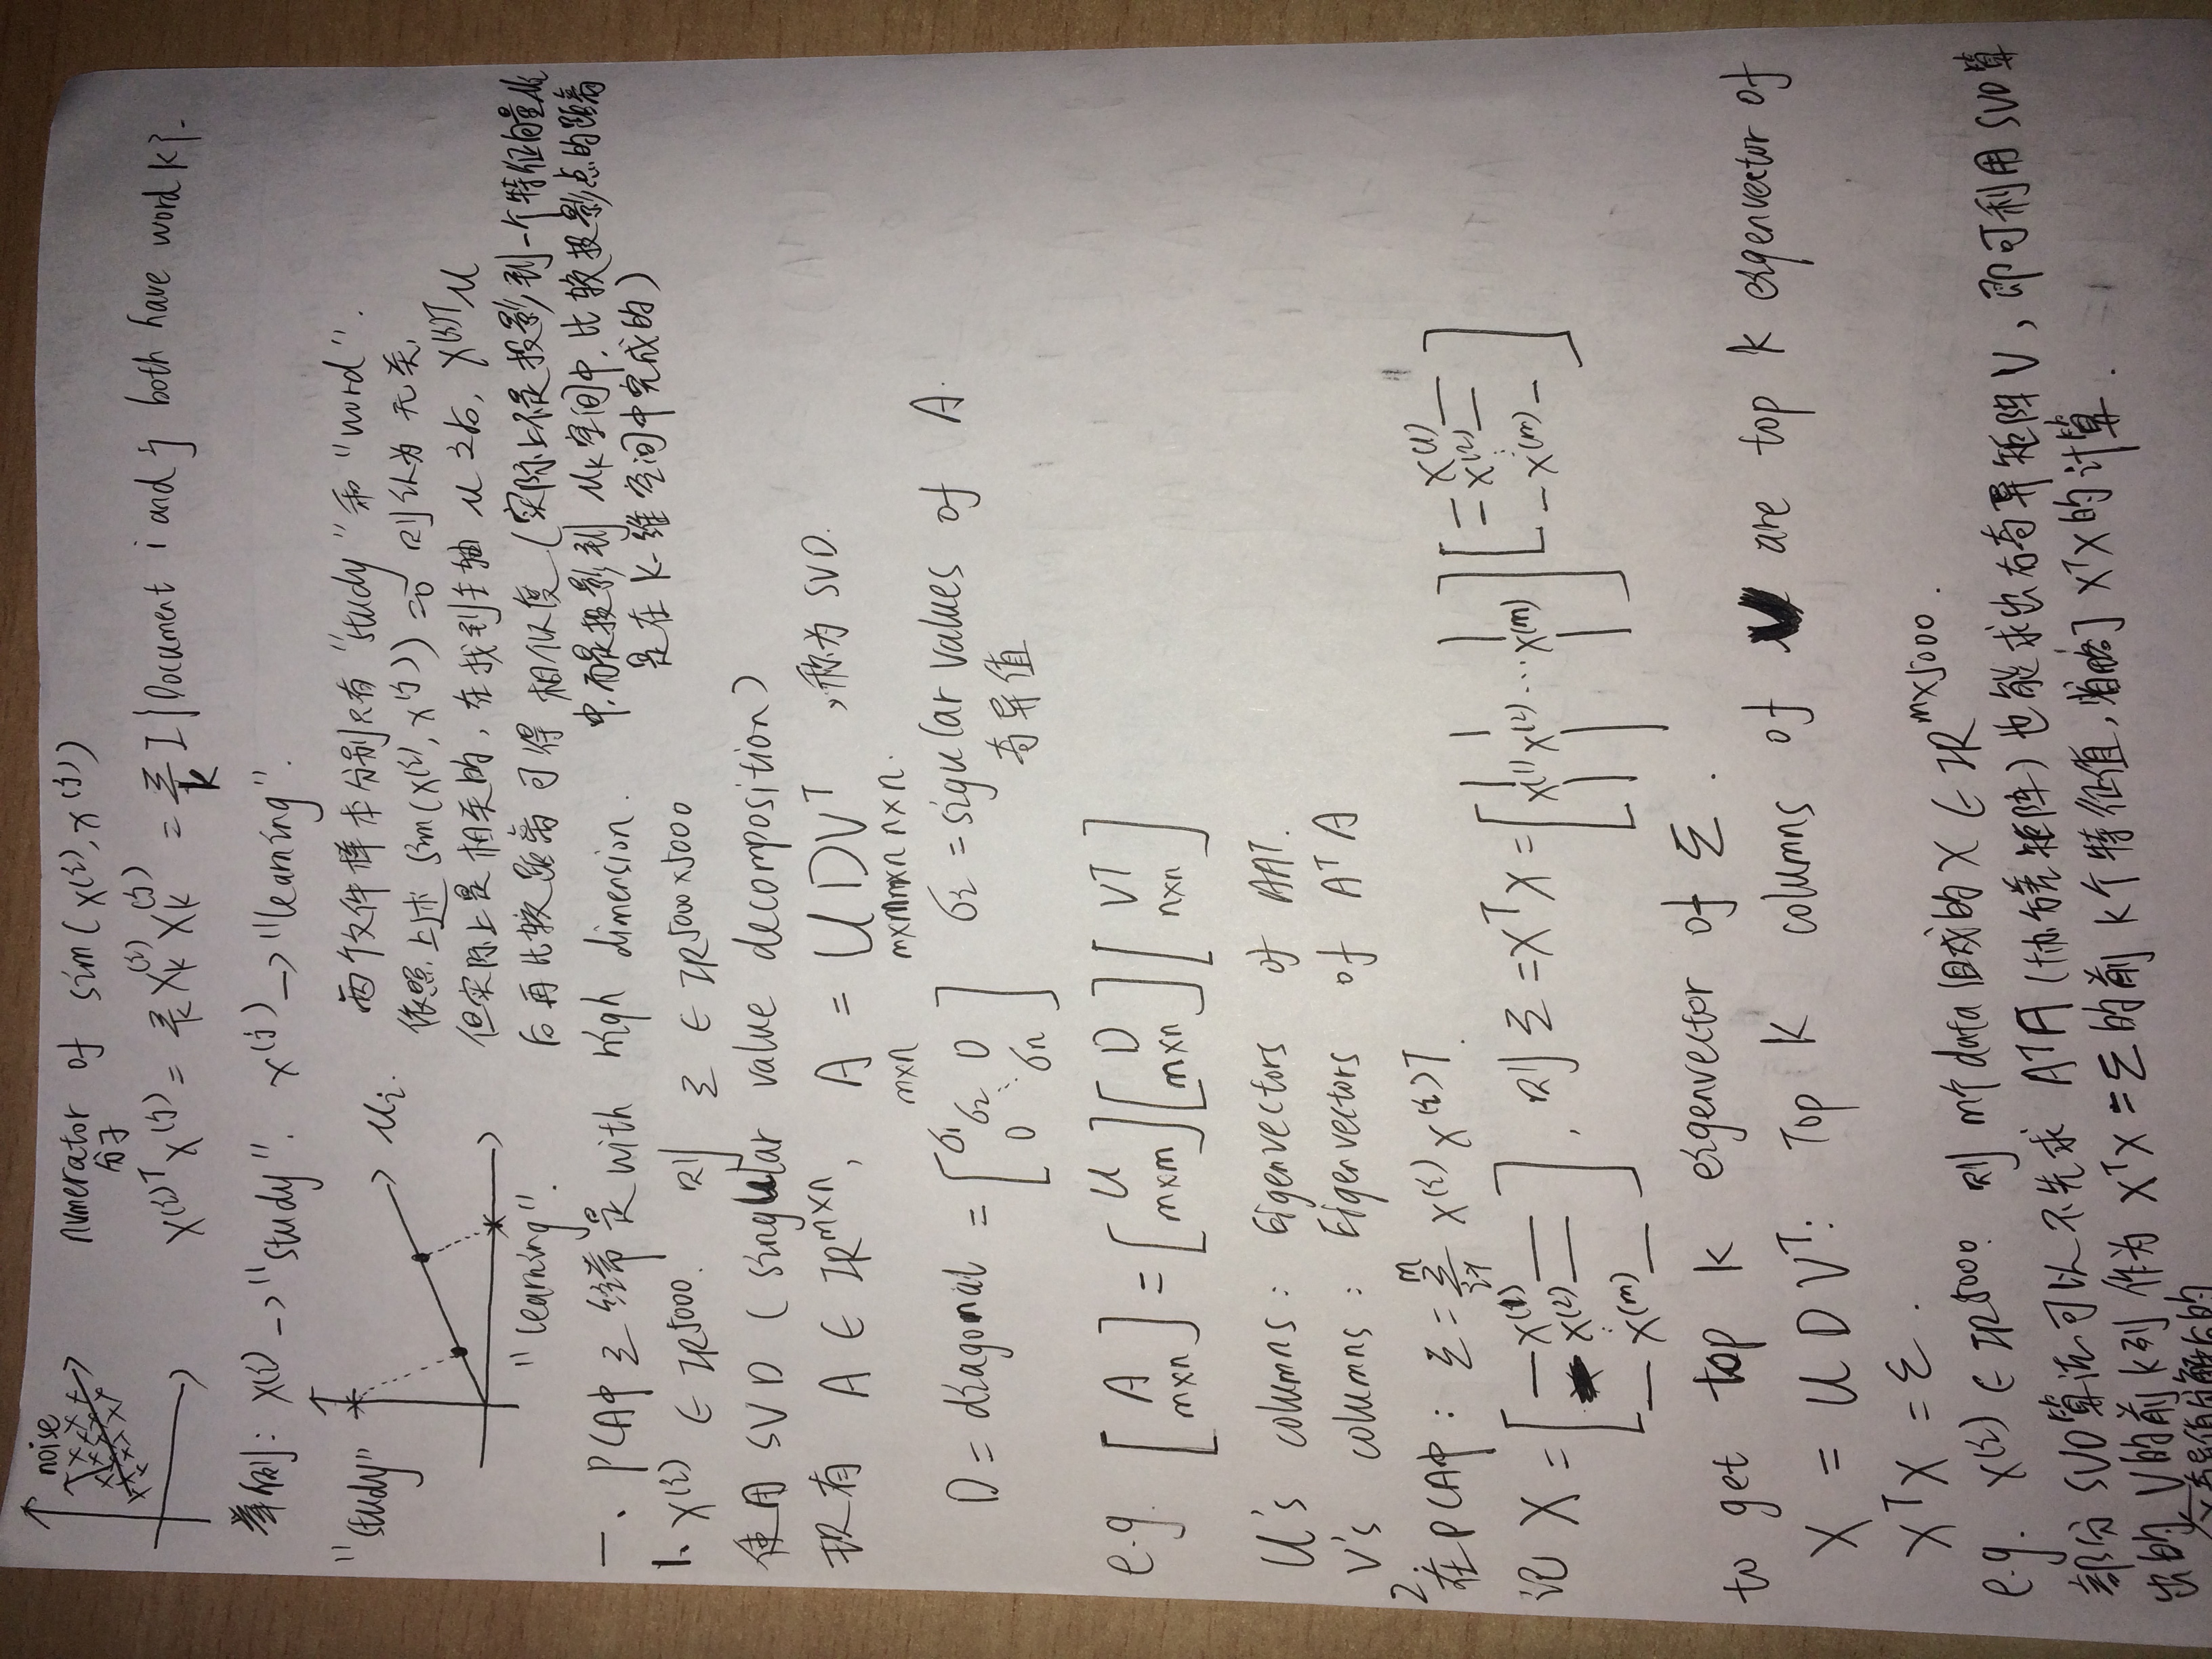 noise
numerator of sim(x^(i), x^(j))
分子
x^(i)T x^(j) = Σ_k x_k^(i) x_k^(j) = Σ_k I{Document i and j both have word k}.
举例: x(i) -> "study". x^(j) -> "learning".
"study"
u_i.
"learning".
两个文件样本分别只有 "study" 和 "word".
依照上述 sim(x^(i), x^(j)) = 0 则认为无关,
但实际上是相关的, 在找到主轴 u 之后, x^(i)T u
后再比较距离可得相似度 (实际上不是投影到一个特征向量u_i
中, 而是投影到 u_k 空间中, 比较投影点的距离
是在 k-维空间中完成的)
一、PCA中 Σ 经常是 with high dimension.
1、x^(i) ∈ IR^5000. 则 Σ ∈ IR^5000×5000
使用 SVD (singular value decomposition)
现有 A ∈ IR^m×n, A = U D V^T, 称为 SVD.
m×n m×m m×n n×n.
D = diagonal = [σ1 σ2 0 0 ⋱ σn] σi = sigular values of A.
奇异值
e.g. [A m×n] = [U m×m] [D m×n] [VT n×n]
U's columns: Eigenvectors of AAT.
V's columns: Eigenvectors of A^T A
2.
在PCA中: Σ = Σ_{i=1}^m x^(i) x^(i)T.
记 X = [— x^(1) — x^(2) — ⋮ — x^(m) —], 则 Σ = X^T X = [x^(1) x^(2) ... x^(m)] [— x^(1) — — x^(2) — ⋮ — x^(m) —]
to get top k eigenvector of Σ.
X = U D V^T: Top K columns of V are top k eigenvector of
X^T X = Σ.
e.g. x^(i) ∈ IR^5000. 则 m个data组成的 X ∈ IR^m×5000.
部分 SVD算法可以不先求 A^T A (协方差矩阵) 也能求出右奇异矩阵 V, 即可利用 SVD 算
出的 V的前k列 作为 X^T X = Σ 的前 k个特征值, 省略了 X^T X 的计算.
X奇异值分解后的